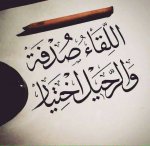 اللِّقَاءُ صُدْفَة
وَالرَّحِيلُ اخْتِيَار